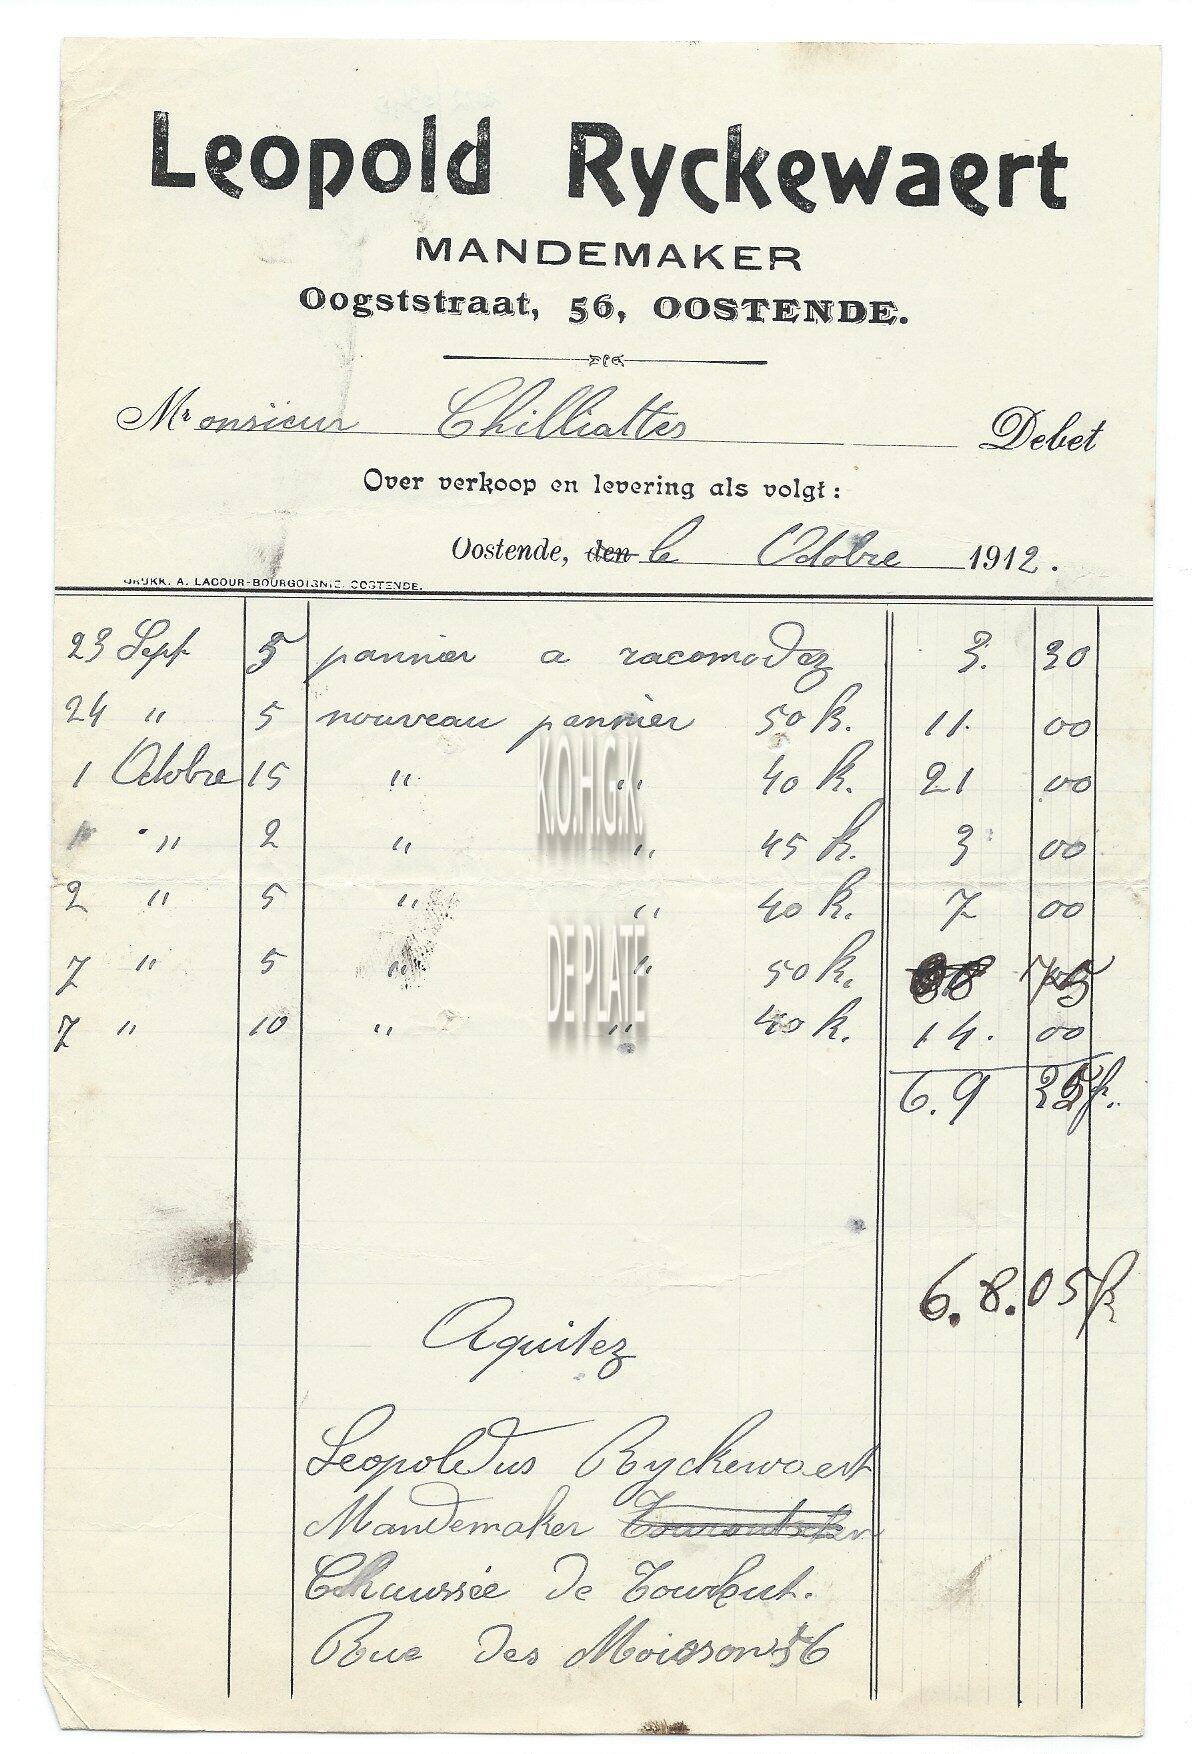 Leopold Ryckewaert
MANDEMAKER
Oogststraat, 56, OOSTENDE.
Mr onsieur Chilliattes Debet
Over verkoop en levering als volgt:
Oostende, den le Octobre 1912.
DRUKK. A. LACOUR-BOURGOIGNIE. OOSTENDE.
23 Sept 5 pannier a racomodez 3. 30
24 " 5 nouveau pannier 50 k. 11. 00
1 Octobre 15 " " 40 k. 21 00
1 " 2 " " 45 k. 3 00
2 " 5 " " 40 k. 7 00
7 " 5 " " 50 k. 8 75
7 " 10 " " 40 k. 14. 00
6.9 25 fr.
6.8.05 fr
Aquitez
Leopoldus Ryckewaert
Mandemaker
Chaussée de Tourhout.
Rue des Moissons 56
K.O.H.G.K.
DE PLATE